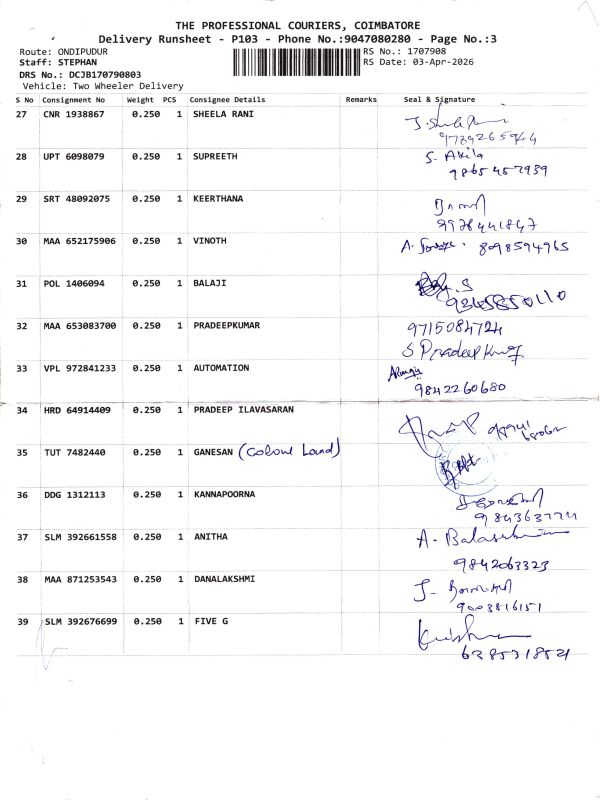 THE PROFESSIONAL COURIERS, COIMBATORE
Delivery Runsheet - P103 - Phone No.:9047080280 - Page No.:3
Route: ONDIPUDUR RS No.: 1707908
Staff: STEPHAN RS Date: 03-Apr-2026
DRS No.: DCJB170790803
Vehicle: Two Wheeler Delivery
S No Consignment No Weight PCS Consignee Details Remarks Seal & Signature
27 CNR 1938867 0.250 1 SHEELA RANI
28 UPT 6098079 0.250 1 SUPREETH S. Akila
9865457939
29 SRT 48092075 0.250 1 KEERTHANA
9978441847
30 MAA 652175906 0.250 1 VINOTH 8098594965
31 POL 1406094 0.250 1 BALAJI
32 MAA 653083700 0.250 1 PRADEEPKUMAR 9715084724
S Pradeep Kumar
33 VPL 972841233 0.250 1 AUTOMATION
9842260680
34 HRD 64914409 0.250 1 PRADEEP ILAVASARAN
35 TUT 7482440 0.250 1 GANESAN (Colour Land)
36 DDG 1312113 0.250 1 KANNAPOORNA
37 SLM 392661558 0.250 1 ANITHA A. Balasubramani
9842063323
38 MAA 871253543 0.250 1 DANALAKSHMI
9003816151
39 SLM 392676699 0.250 1 FIVE G
6385318521